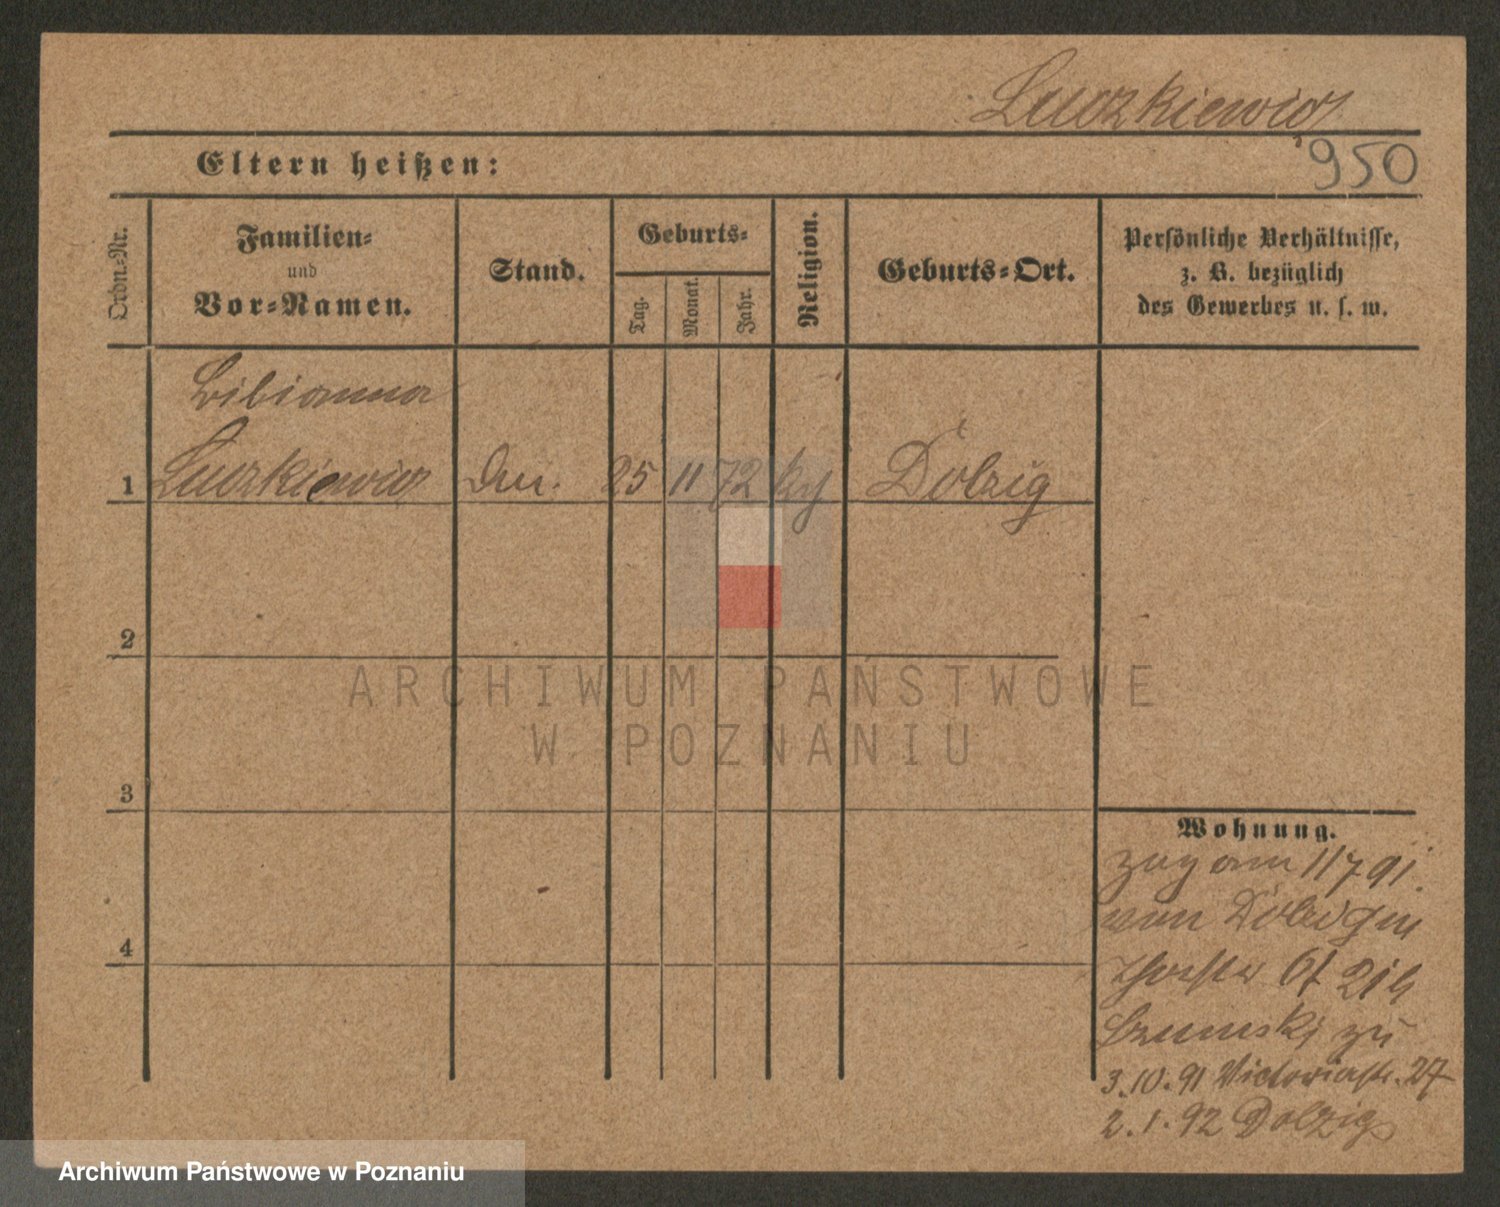 Luczkiewicz
950
Eltern heißen:
Ordn.-Nr.
Familien-
und
Vor-Namen.
Stand.
Geburts-
Tag.
Monat.
Jahr.
Religion.
Geburts-Ort.
Persönliche Verhältnisse,
z. B. bezüglich
des Gewerbes u. s. w.
Bibianna
1 Luczkiewicz 25 11 72 Dolzig
2
3
4
Wohnung.
zug am 11 7 91.
von Dolzig
zu
3.10.91 Victoriastr. 27
2.1.92 Dolzig
ARCHIWUM PAŃSTWOWE
W POZNANIU
Archiwum Państwowe w Poznaniu